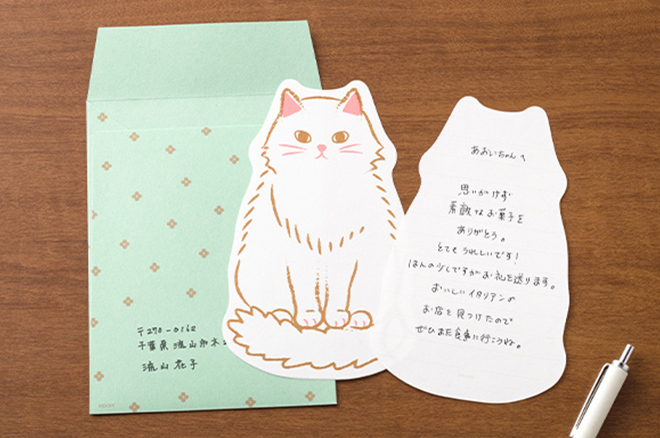 〒270-0162
千葉県流山市木
流山花子
あおいちゃんへ
思いがけず
素敵なお菓子を
ありがとう。
とてもうれしいです!
ほんの少しですがお礼を送ります。
おいしいイタリアンの
お店を見つけたので
ぜひまた食事に行こうね。